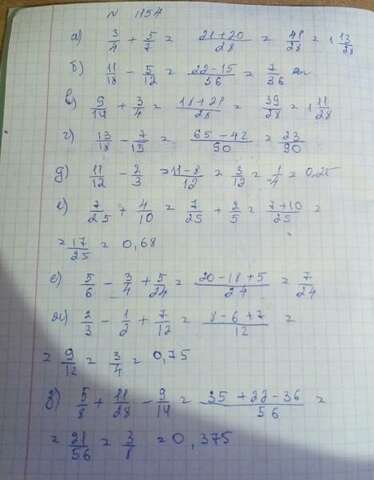 N 1154
а) 3/4 + 5/7 = 21+20/28 = 41/28 = 1 13/28
б) 11/18 - 5/12 = 22-15/36 = 7/36
в) 9/14 + 3/4 = 18+21/28 = 39/28 = 1 11/28
г) 13/18 - 7/15 = 65-42/90 = 23/90
д) 11/12 - 2/3 = 11-8/12 = 3/12 = 1/4 = 0,25
е) 7/25 + 4/10 = 7/25 + 2/5 = 7+10/25 =
= 17/25 = 0,68
е) 5/6 - 3/4 + 5/24 = 20-18+5/24 = 7/24
ж) 2/3 - 1/2 + 7/12 = 8-6+7/12 =
= 9/12 = 3/4 = 0,75
з) 5/8 + 11/28 - 9/14 = 35+22-36/56 =
= 21/56 = 3/8 = 0,375